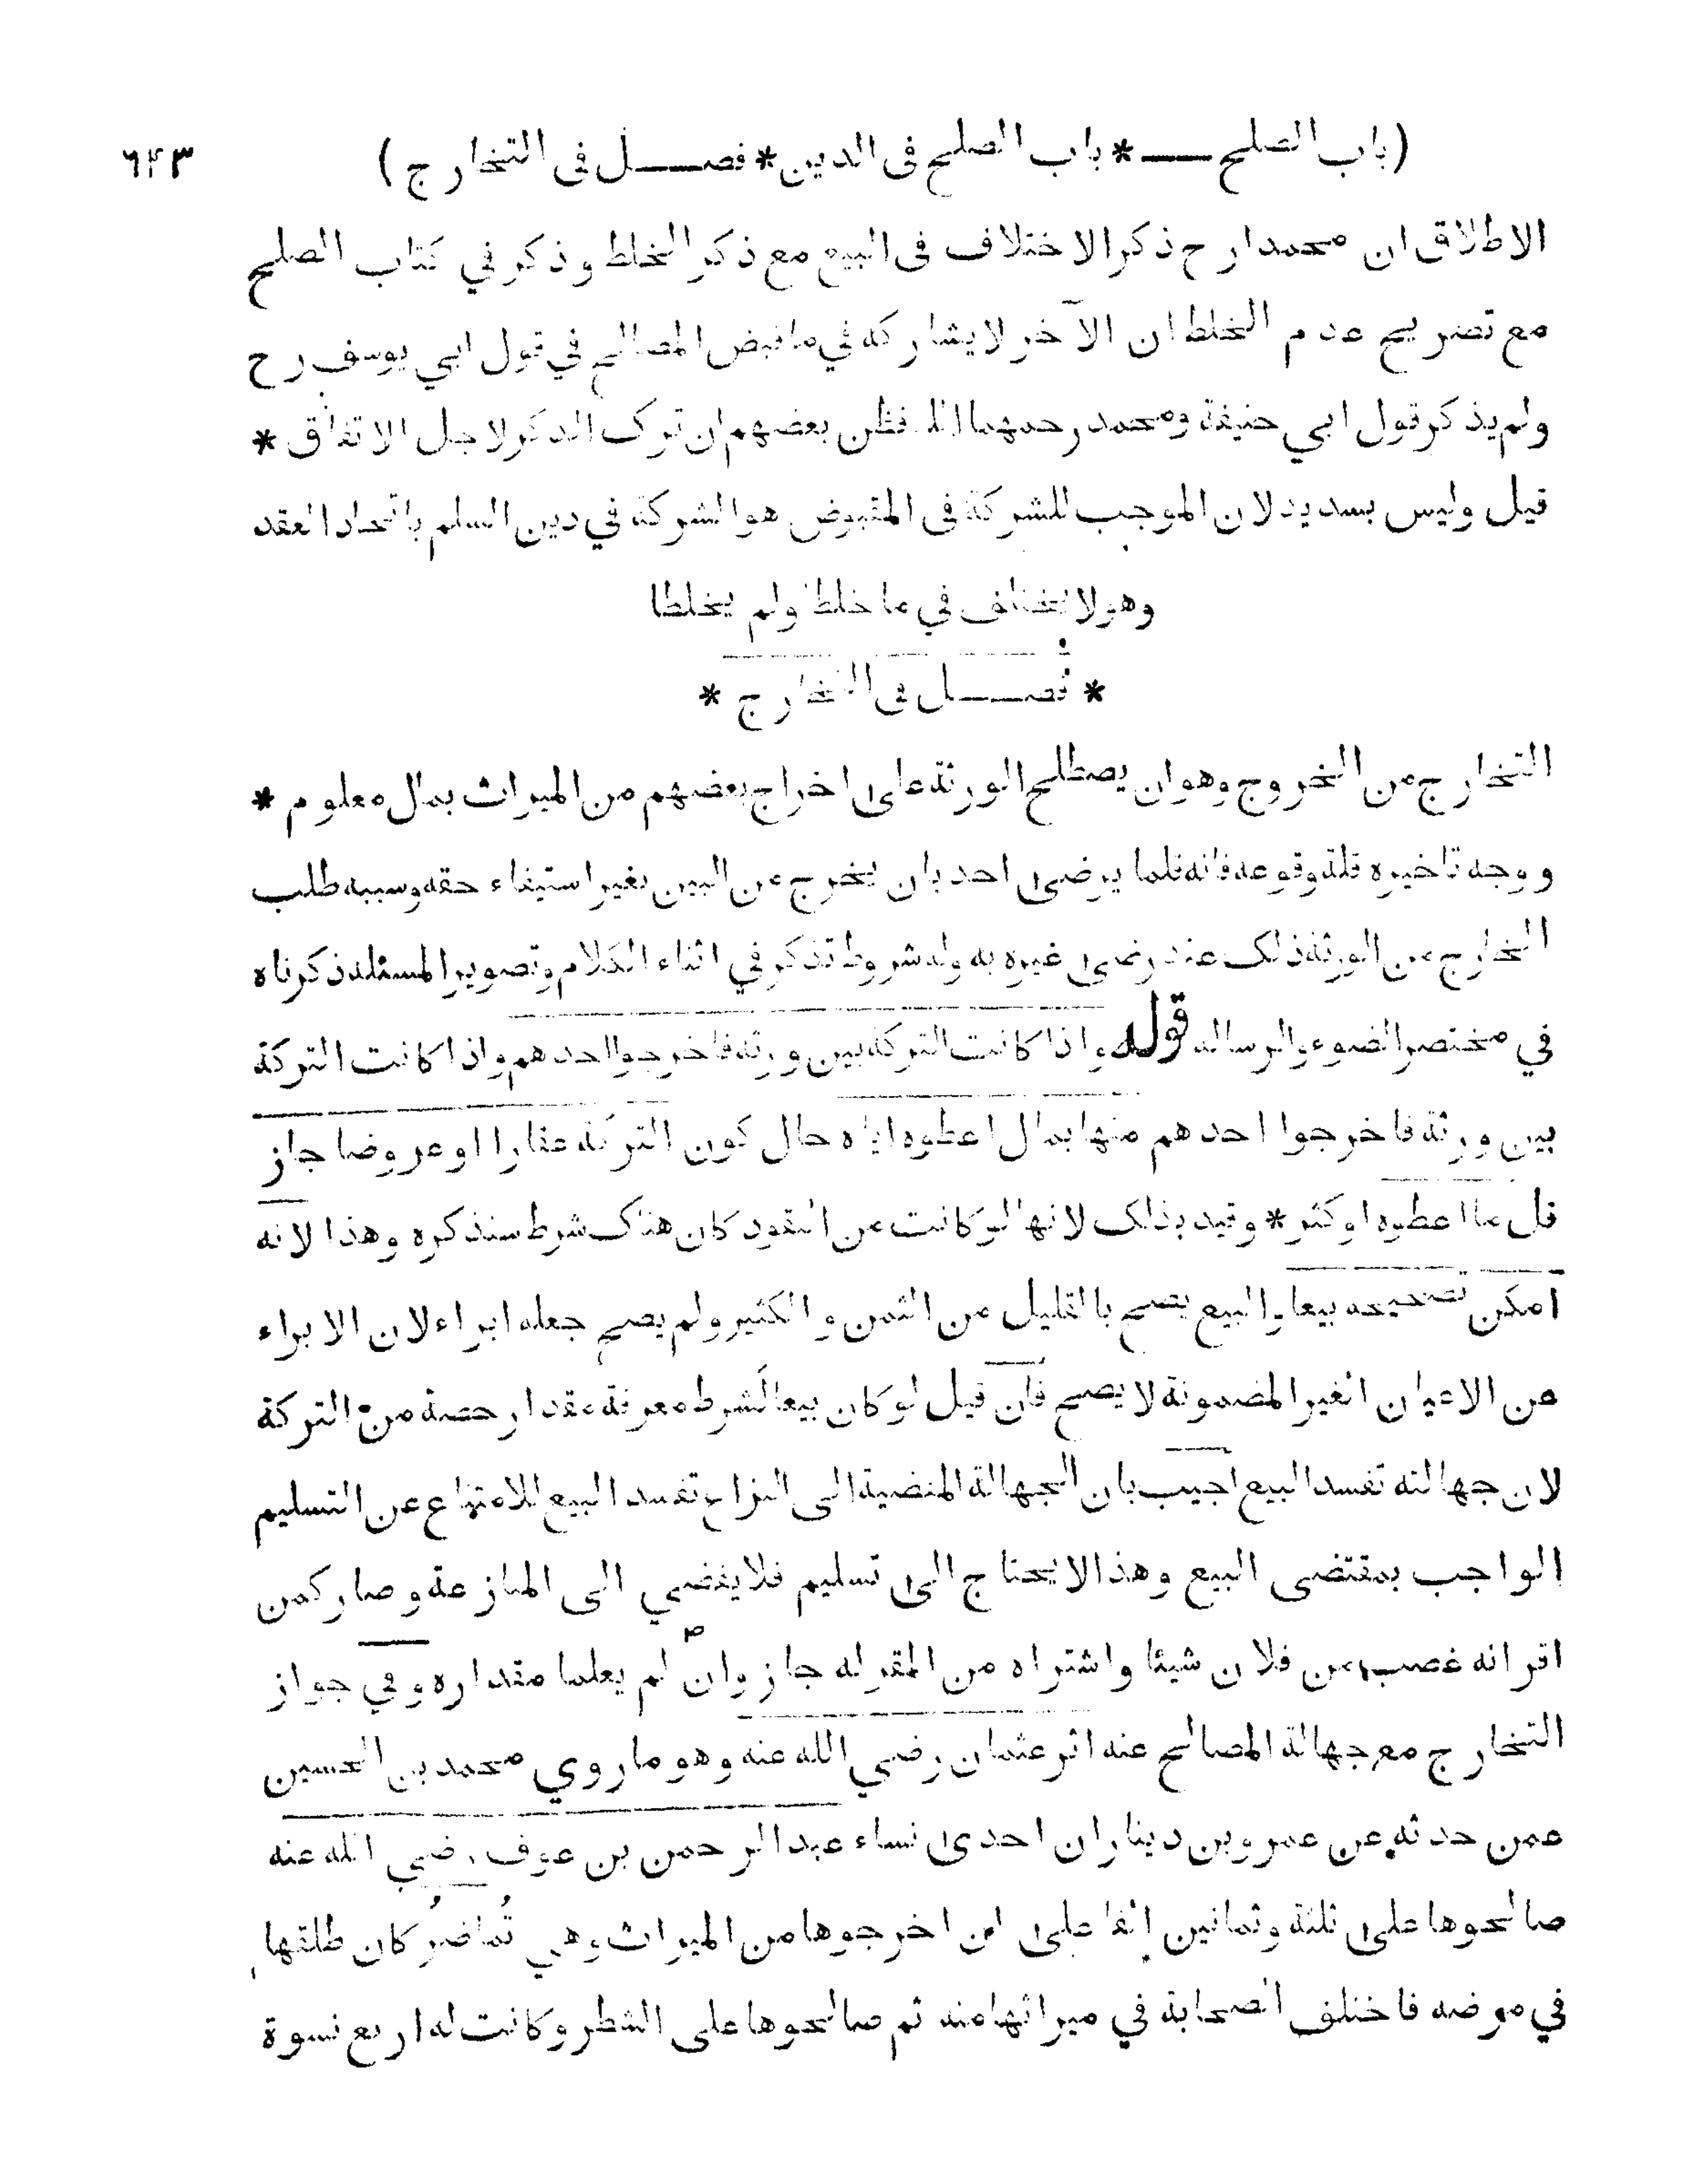 (باب الصلح ـــ * باب الصلح فى الدين * فصـــل فى التخارج) ٦٤٣
الاطلاق ان محمدا رح ذكر الاختلاف فى البيع مع ذكر الخلط وذكر في كتاب الصلح
مع تصريح عدم الخلط ان الآخر لا يشاركه في ما قبض المصالح في قول ابي يوسف رح
ولم يذكر قول ابي حنيفة ومحمد رحمهما الله فظن بعضهم ان ترك الذكر لاجل الاتفاق *
قيل وليس بسديد لان الموجب للشركة فى المقبوض هو الشركة في دين السلم باتحاد العقد
وهو لا يختلف في ما خلطا ولم يخلطا
* فصـــل فى التخارج *
التخارج من الخروج وهو ان يصطلح الورثة على اخراج بعضهم من الميراث بمال معلوم *
ووجه تاخيره قلة وقوعه فانه قلما يرضى احد بان يخرج من البين بغير استيفاء حقه وسببه طلب
الخارج من الورثة ذلك عند رضى غيره به وله شروط تذكر في اثناء الكلام وتصوير المسئلة ذكرناه
في مختصر الضوء والرسالة قوله واذا كانت التركة بين ورثة فاخرجوا احدهم واذا كانت التركة
بين ورثة فاخرجوا احدهم منها بمال اعطوه اياه حال كون التركة عقارا او عروضا جاز
قل ما اعطوه او كثر * وقيد بذلك لانها لو كانت من النقود كان هناك شرط سنذكره وهذا لانه
امكن تصحيحه بيعا والبيع يصح بالقليل من الثمن والكثير ولم يصح جعله ابراء لان الابراء
عن الاعيان الغير المضمونة لا يصح فان قيل لو كان بيعا لشرط معرفة مقدار حصة من التركة
لان جهالته تفسد البيع اجيب بان الجهالة المفضية الى النزاع تفسد البيع للامتناع عن التسليم
الواجب بمقتضى البيع وهذا لا يحتاج الى تسليم فلا يفضي الى المنازعة وصار كمن
اقر انه غصب من فلان شيئا واشتراه من المقر له جاز وان لم يعلما مقداره وفي جواز
التخارج مع جهالة المصالح عنه اثر عثمان رضي الله عنه وهو ما روي محمد بن الحسين
عمن حدثه عن عمرو بن دينار ان احدى نساء عبد الرحمن بن عوف رضي الله عنه
صالحوها على ثلثة وثمانين الفا على ان اخرجوها من الميراث وهي تُماضرُ كان طلقها
في مرضه فاختلف الصحابة في ميراثها منه ثم صالحوها على الشطر وكانت له اربع نسوة